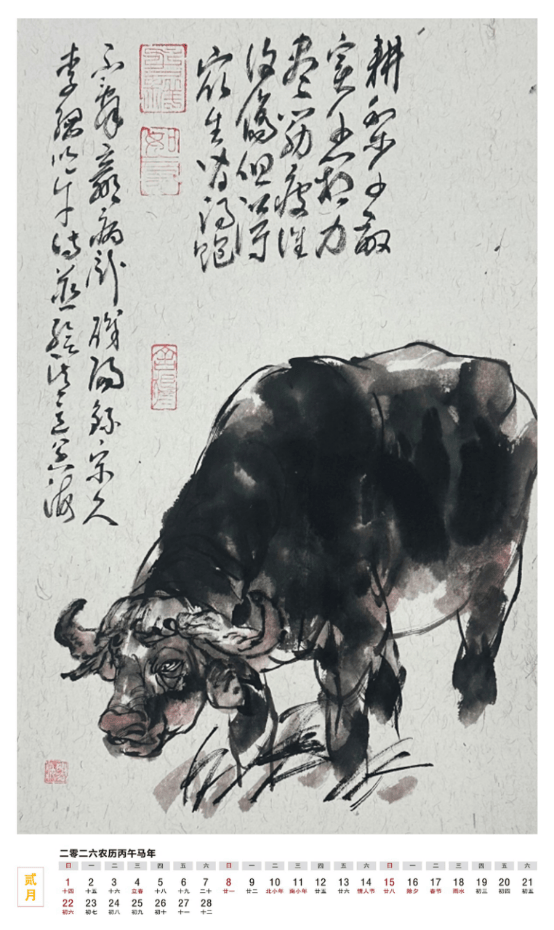 耕犁千畝
實千箱力
盡筋疲誰
復傷但得
眾生皆得飽
不辭羸病卧殘陽錄宋人
李綱咏牛詩並繪
二零二六农历丙午马年
贰月
日 一 二 三 四 五 六 日 一 二 三 四 五 六 日 一 二 三 四 五 六
1 2 3 4 5 6 7 8 9 10 11 12 13 14 15 16 17 18 19 20 21
十四 十五 十六 立春 十八 十九 二十 廿一 廿二 北小年 南小年 廿五 廿六 情人节 廿八 除夕 春节 雨水 初三 初四 初五
22 23 24 25 26 27 28
初六 初七 初八 初九 初十 十一 十二